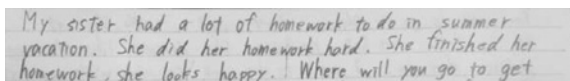 My sister had a lot of homework to do in summer
vacation. She did her homework hard. She finished her
homework, she looks happy. Where will you go to get